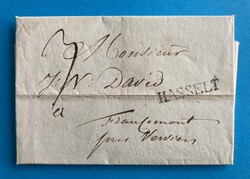 Monsieur
J. N. David
HASSELT
a
Fransomont
par Verviers